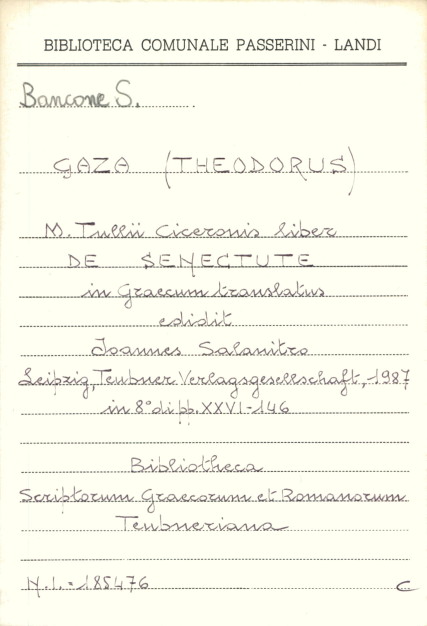 BIBLIOTECA COMUNALE PASSERINI - LANDI
Bancone S.
GAZA (THEODORUS)
M. Tullii Ciceronis liber
DE SENECTUTE
in Graecum translatus
edidit
Joannes Salanitro
Leipzig, Teubner Verlagsgesellschaft, 1987
in 8° di pp. XXVI-146
Bibliotheca
Scriptorum Graecorum et Romanorum
Teubneriana
N.I. = 185476 C